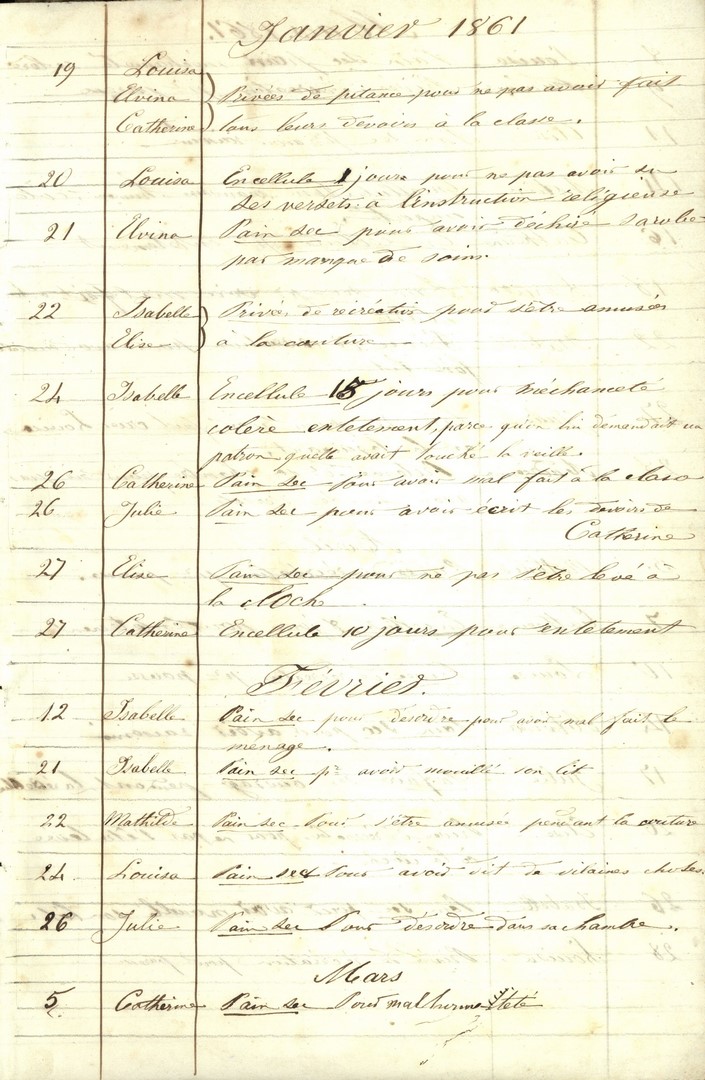 Janvier 1861
19 Louisa
Elvina Privées de pitance pour ne pas avoir fait
Catherine tous leurs devoirs à la classe.
20 Louisa Encellule 1 jours pour ne pas avoir su
ses versets à l'instruction religieuse
21 Elvina Pain sec pour avoir déchiré sa robe
par manque de soin.
22 Isabelle Privés de récréation pour s'être amusées
Elise à la couture
24 Isabelle Encellule 15 jours pour méchanceté
colère entetement, parce qu'on lui demandait un
patron quelle avait touché la veille
26 Catherine Pain sec Pour avoir mal fait à la classe
26 Julie Pain sec pour avoir écrit les devoirs de
Catherine
27 Elise Pain sec pour ne pas s'être levé à
la cloch
27 Catherine Encellule 10 jours pour entetement
Février.
12 Isabelle Pain sec pour desordre pour avoir mal fait le
menage.
21 Isabelle Pain sec pr avoir mouillé son lit
22 Mathilde Pain sec Pour s'être amusée pendant la couture
24. Louisa Pain sec Pour avoir dit de vilaines choses.
26 Julie Pain sec Pour desordre dans sa chambre.
Mars
5 Catherine Pain sec Pour malhonnêteté